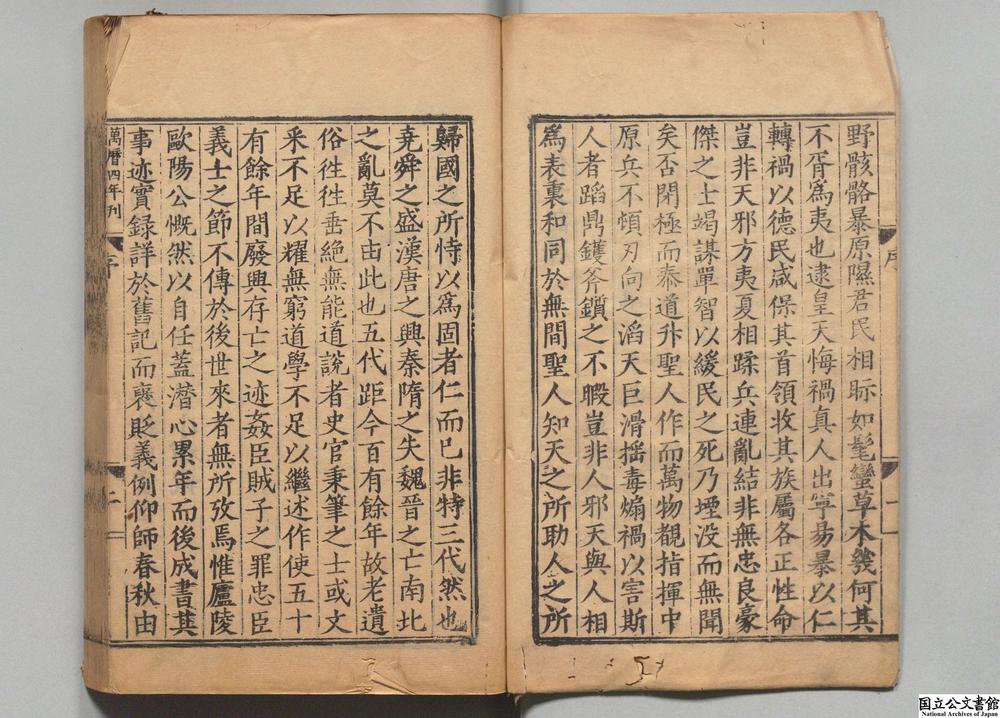 野骸骼暴原隰君民相眎如髦蠻草木幾何其
不胥爲夷也逮皇天悔禍真人出寧易暴以仁
轉禍以德民咸保其首領收其族屬各正性命
豈非天邪方夷夏相蹂兵連亂結非無忠良豪
傑之士竭謀單智以緩民之死乃堙没而無聞
矣否閉極而泰道升聖人作而萬物覩指揮中
原兵不頓刃向之滔天巨滑揺毒煽禍以害斯
人者蹈鼎鑊斧鑕之不暇豈非人邪天與人相
爲表裏和同於無間聖人知天之所助人之所
序
一
歸國之所恃以爲固者仁而已非特三代然也
尭舜之盛漢唐之興秦隋之失魏晉之亡南北
之亂莫不由此也五代距今百有餘年故老遺
俗徃徃垂絶無能道說者史官秉筆之士或文
采不足以耀無窮道學不足以繼述作使五十
有餘年間廢興存亡之迹姦臣賊子之罪忠臣
義士之節不傳於後世來者無所攷焉惟廬陵
歐陽公慨然以自任蓋潛心累年而後成書其
事迹實録詳於舊記而襃貶義例仰師春秋由
萬曆四年刋
序
二
国立公文書館
National Archives of Japan